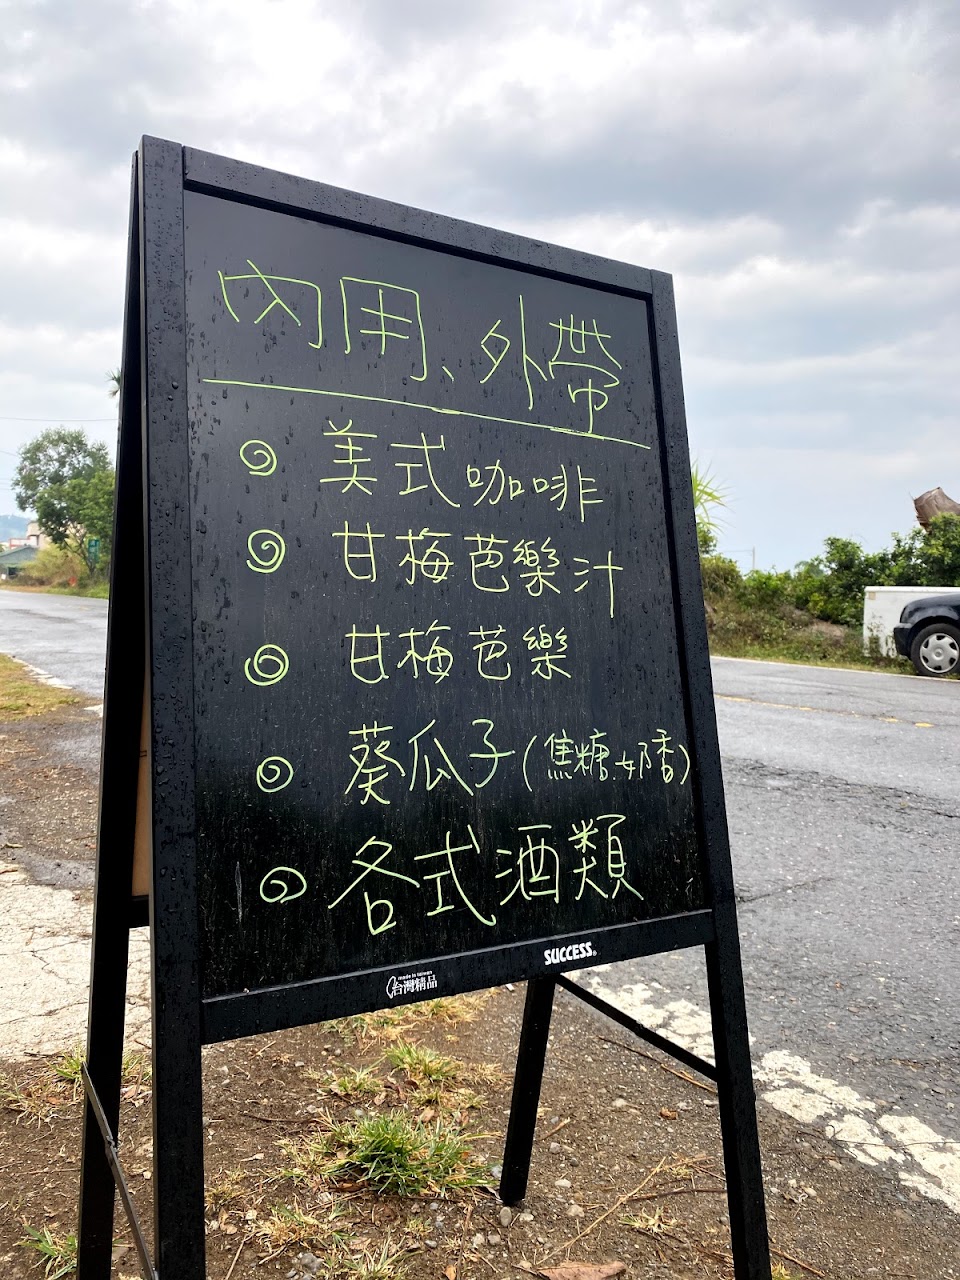 內用、外帶
美式咖啡
甘梅芭樂汁
甘梅芭樂
葵瓜子(焦糖.奶香)
各式酒類
SUCCESS®
made in taiwan
台灣精品